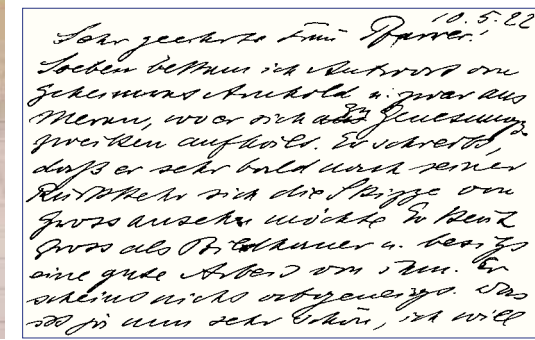 10.5.22
Sehr geehrte Frau Pfarrer!
Soeben bekam ich Antwort von
Geheimrat Arnhold u. zwar aus
Meran, wo er sich zu Genesungs-
zwecken aufhält. Er schreibt,
daß er sehr bald nach seiner
Rückkehr sich die Skizze von
Gross ansehen möchte. Er kennt
Gross als Bildhauer u. besitzt
eine gute Arbeit von ihm. Er
scheint nicht abgeneigt. Das
ist ja nun sehr schön, ich will